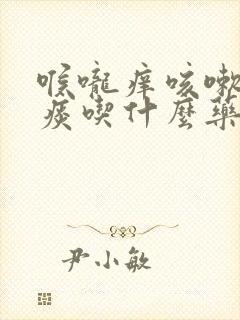 喉嚨痒咳嗽
痰喫什麼藥
尹小敏